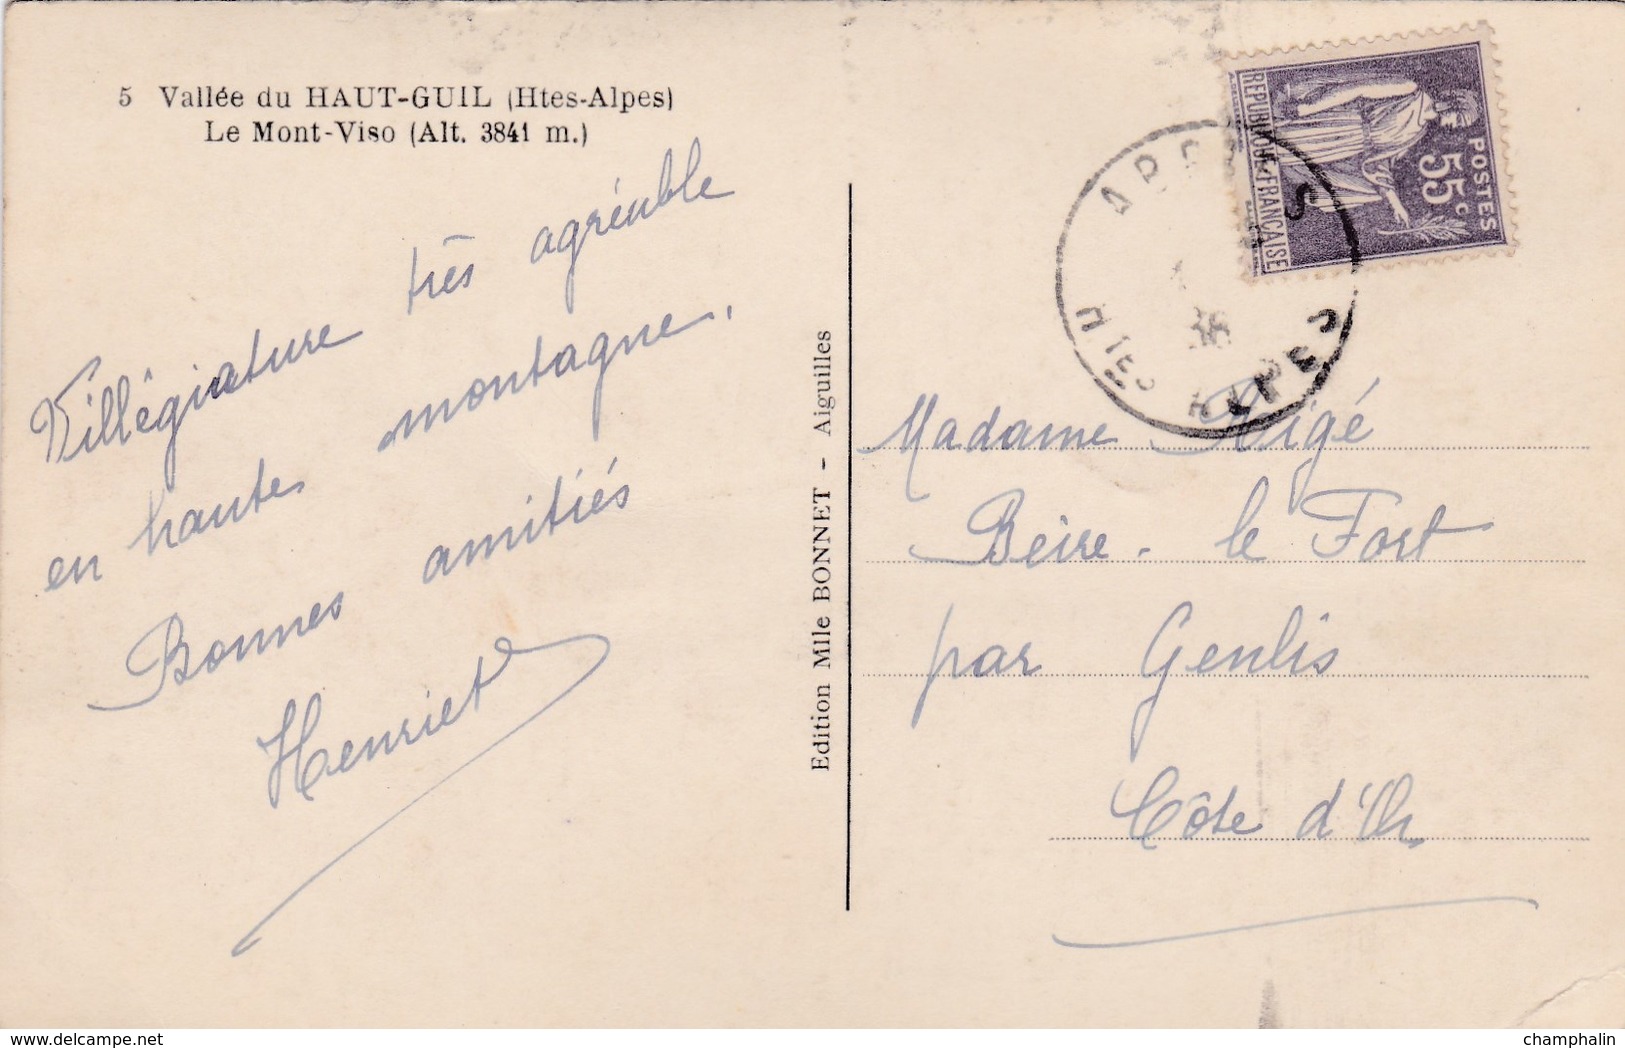 5 Vallée du HAUT-GUIL (Htes-Alpes)
Le Mont-Viso (Alt. 3841 m.)
Villégiature très agréable
en haute montagne.
Bonnes amitiés
Henriet
Edition Mlle BONNET - Aiguilles
REPUBLIQUE FRANÇAISE
POSTES
55c
Htes ALPES
Madame
Beire-le Fort
par Genlis
Côte d'Or
delcampe.net
champhalin